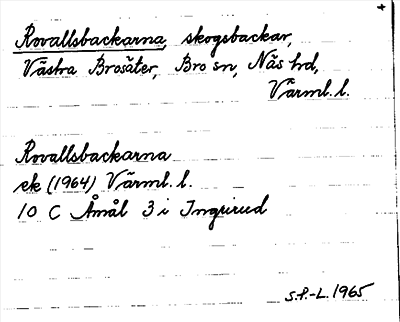 Rovallsbackarna, skogsbackar,
Västra Brosäter, Bro sn, Näs hd,
Värml. l.
Rovallsbackarna
ek (1964) Värml. l.
10 C Åmål 3 i Ingrirud
S.P.-L. 1965